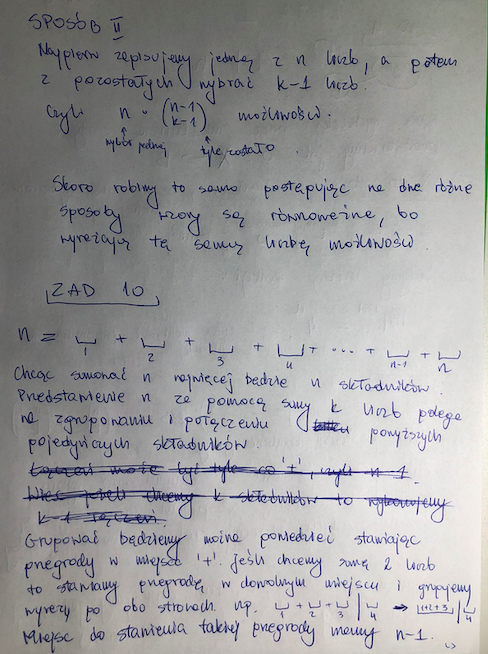 SPOSÓB II
Najpierw zapisujemy jedną z n liczb, a potem
z pozostałych wybrać k-1 liczb.
Czyli n · (n-1 k-1) możliwości.
wybór jednej tyle zostało
Skoro robimy to samo postępując na dwa różne
sposoby wzory są równoważne, bo
wyrażają tą samą liczbę możliwości.
ZAD 10
n = ⎵ + ⎵ + ⎵ + ⎵ + ... + ⎵ + ⎵
1 2 3 4 n-1 n
Chcąc sumować n najwięcej będzie n składników.
Przedstawienie n za pomocą sumy k liczb polega
na zgrupowaniu i połączeniu powyższych
pojedynczych składników.
Łączeń może być tyle co '+', czyli n-1.
Więc jeżeli chcemy k składników to wykonujemy
k-1 łączeń.
Grupować będziemy można powiedzieć stawiając
przegrody w miejsce '+'. Jeśli chcemy sumę 2 liczb
to stawiamy przegrodę w dowolnym miejscu i grupujemy
wyrazy po obu stronach np. ⎵ + ⎵ + ⎵ | ⎵ → 1+2+3 | ⎵
1 2 3 4 4
Miejsc do stawienia takiej przegrody mamy n-1.